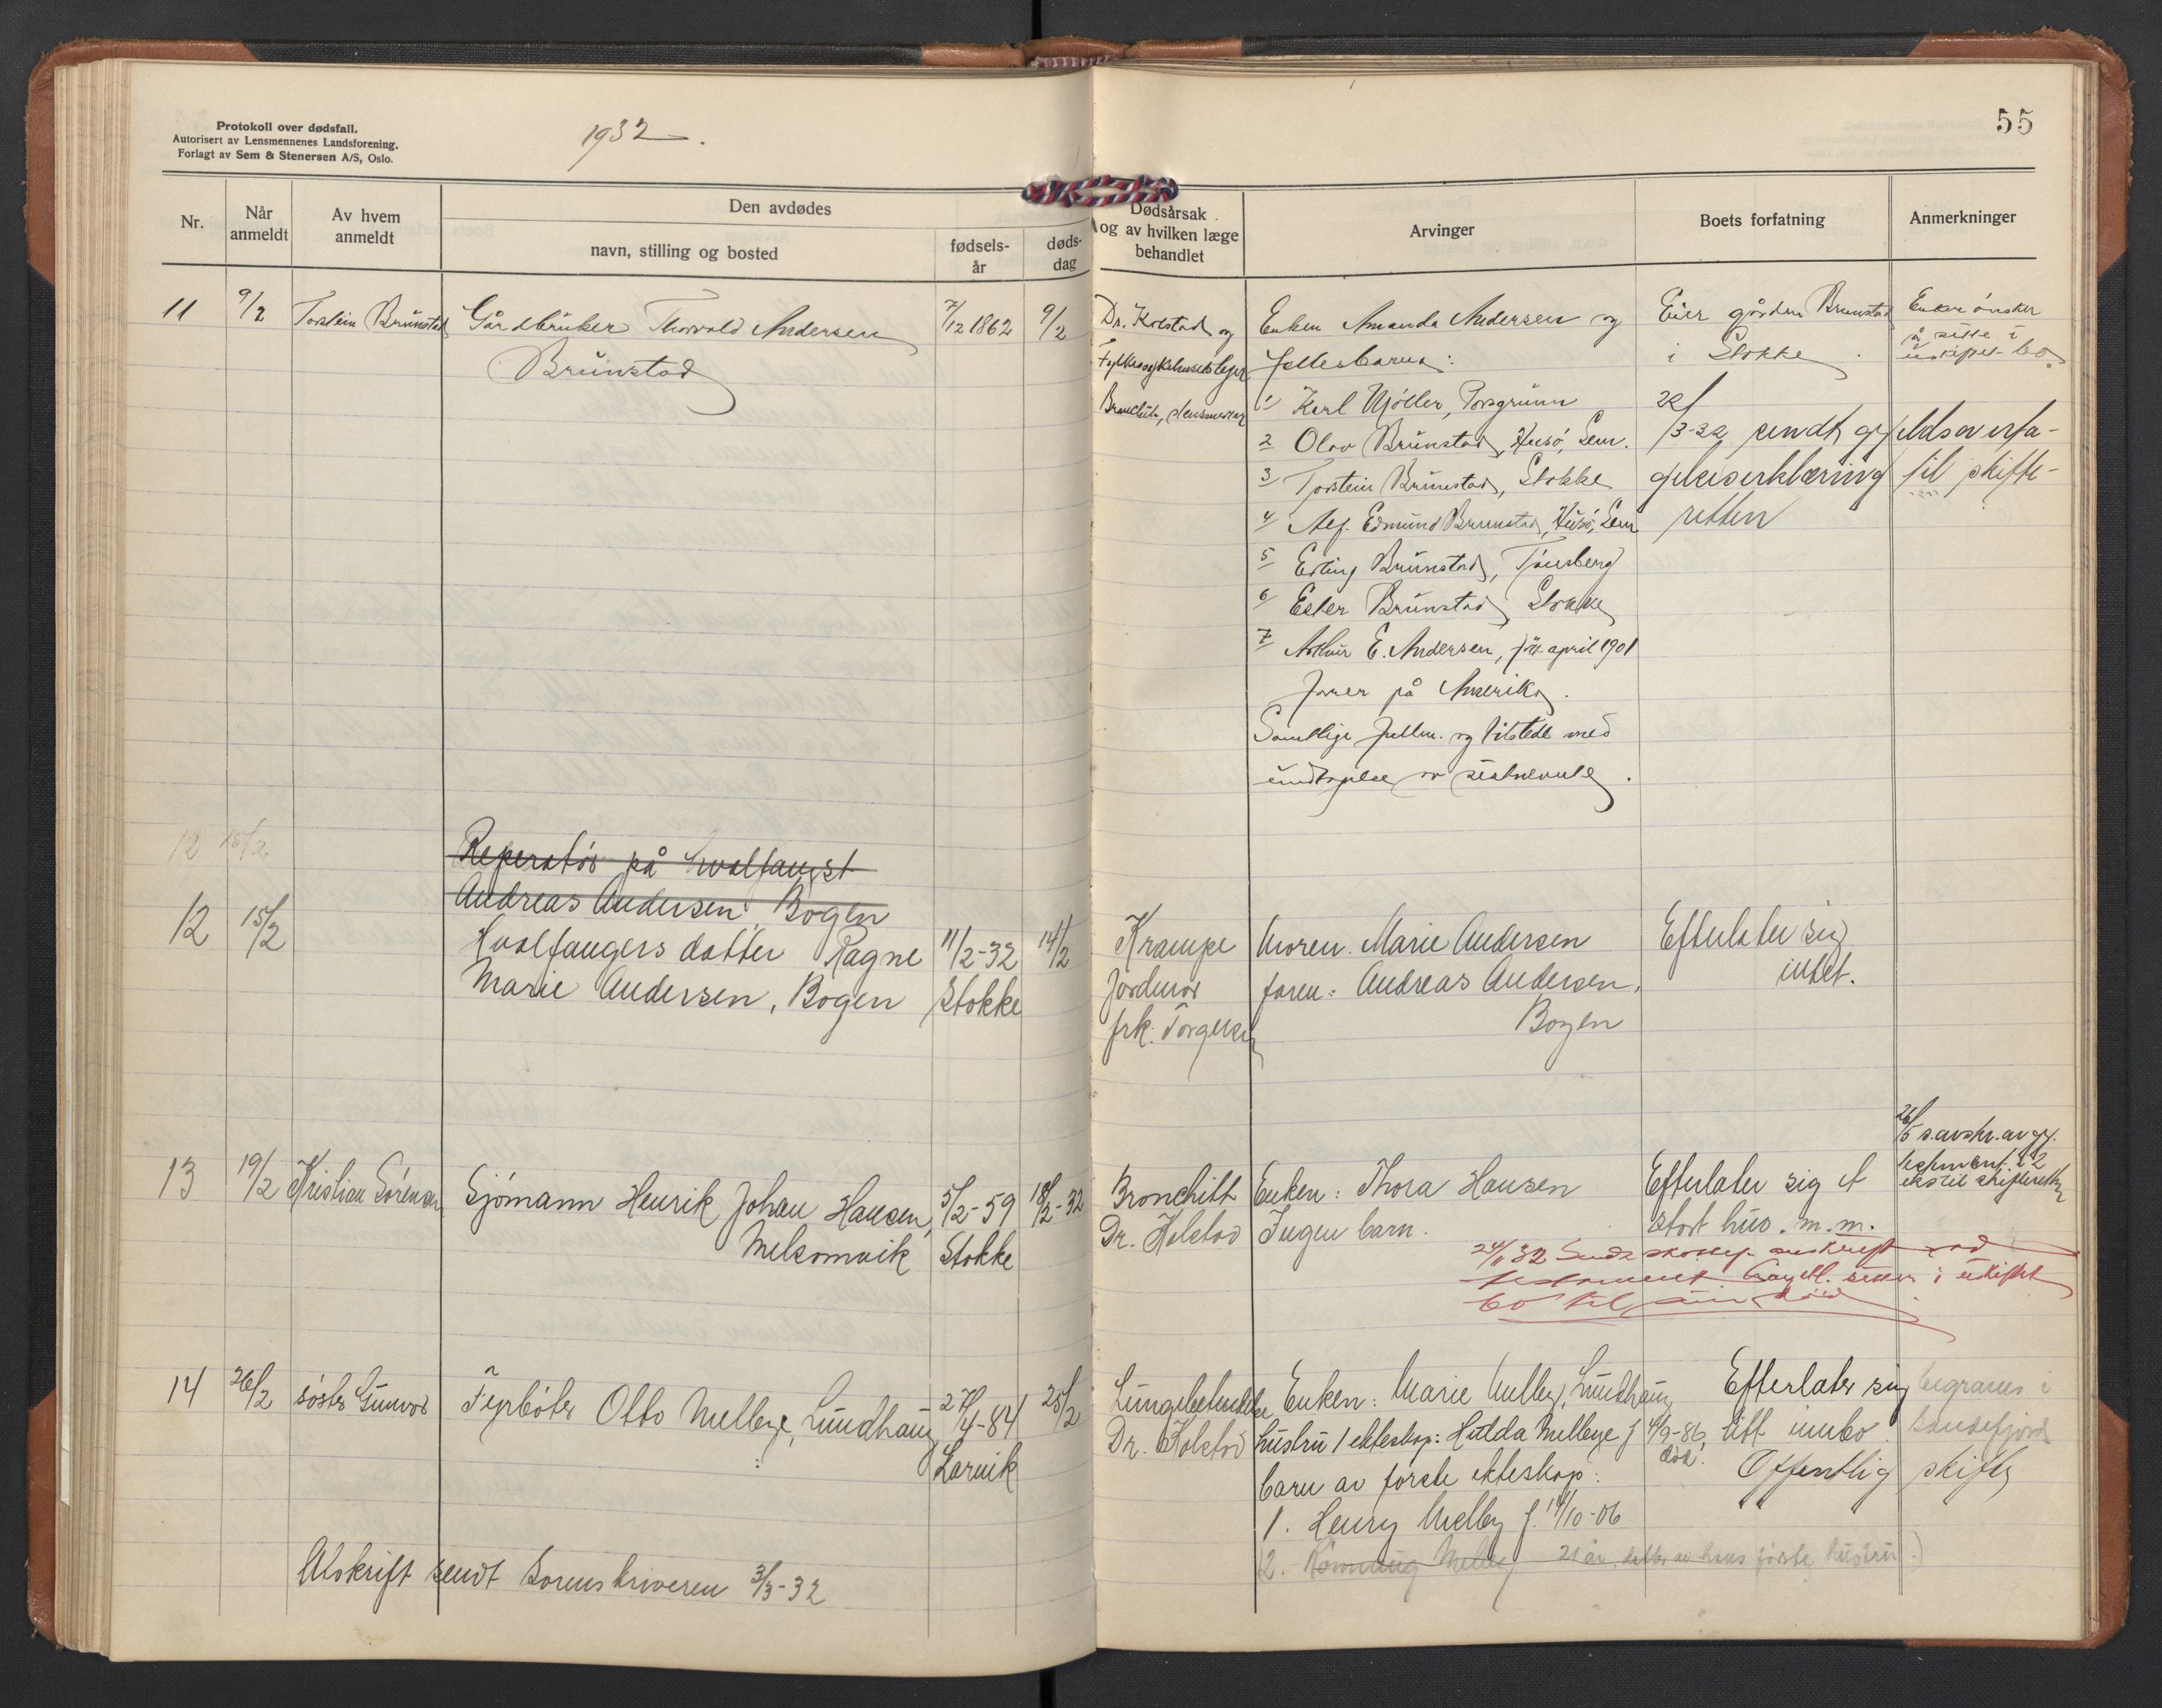 55
Protokoll over dødsfall.
Autorisert av Lensmennenes Landsforening.
Forlagt av Sem & Stenersen A/S, Oslo.
1932
Nr.
Når anmeldt
Av hvem anmeldt
Den avdødes
navn, stilling og bosted
fødsels-
år
døds-
dag
Dødsårsak
og av hvilken læge
behandlet
Arvinger
Boets forfatning
Anmerkninger
11 9/2 Torstein Brunstad Gårdbruker Thorvald Andersen 7/12 1862 9/2
Brunstad
Dr. Kolstad og
Bronchitt,
Enken Amanda Andersen og
fellesbarn:
1 Karl Mjöller, Porsgrunn
2 Olav Brunstad, Husö, Sem.
3 Torstein Brunstad, Stokke
4 Alf Edmund Brunstad, Husö, Sem
5 Erling Brunstad, Tönsberg
6 Ester Brunstad Stokke
7 Arthur E. Andersen, april 1901
farer på Amerika.
Samtlige fullm. og tilstede med
undtagelse av sistnevnte.
Eier gården Brunstad
i Stokke.
Enken ønsker
å sitte i
uskiftet bo
sendt gjeldsoverta-
gelseserklæring til skifte-
retten
12 15/2
Reperatör på hvalfangst
Andreas Andersen, Bogen
12 15/2 Hvalfangers datter Ragne 11/2-32 14/2
Marie Andersen, Bogen Stokke
Krampe
Jordmor
frk. Torgersen
Moren. Marie Andersen
faren: Andreas Andersen,
Bogen
Efterlater sig
intet.
13 19/2 Kristian Sörensen Sjömann Henrik Johan Hansen, 5/2-59 18/2-32
Melsomvik Stokke
Bronchitt
Dr. Kolstad
Enken: Thora Hansen
Ingen barn.
Efterlater sig et
stort hus. m.m.
26/5 s. avskr. av gj.
testament i 2
eks til skifteretten
24/11 32 Sendt avskrift
testament. sitter i uskiftet
bo til sin död
14 26/2 söster Gunvor Fyrböter Otto Melbye, Lundhaug 27/4-84 25/2
Larvik
Lungebetendelse
Dr. Kolstad
Enken: Marie Melby, Lundhaug
hustru 1 ekteskap: Hilda Melbye f 4/9-86,
död.
barn av förste ekteskap:
1. Henry Melby f. 14/10-06
2. Melby 21 år, datter av hans förste hustru.)
Efterlater sig
litt innbo.
Offentlig skifte
begraves i
Sandefjord
Avskrift sendt Sorenskriveren 3/3-32